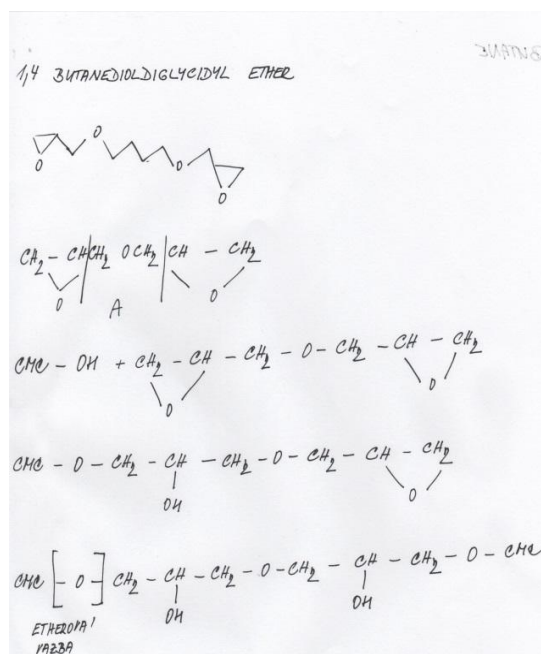 BUTANE
1,4 BUTANEDIOLDIGLYCIDYL ETHER
O
O O
O
CH2 - CH CH2 OCH2 CH - CH2
O A O
CMC - OH + CH2 - CH - CH2 - O - CH2 - CH - CH2
O O
CMC - O - CH2 - CH - CH2 - O - CH2 - CH - CH2
OH O
CMC [- O -] CH2 - CH - CH2 - O - CH2 - CH - CH2 - O - CMC
OH OH
ETHEROVÁ
VAZBA